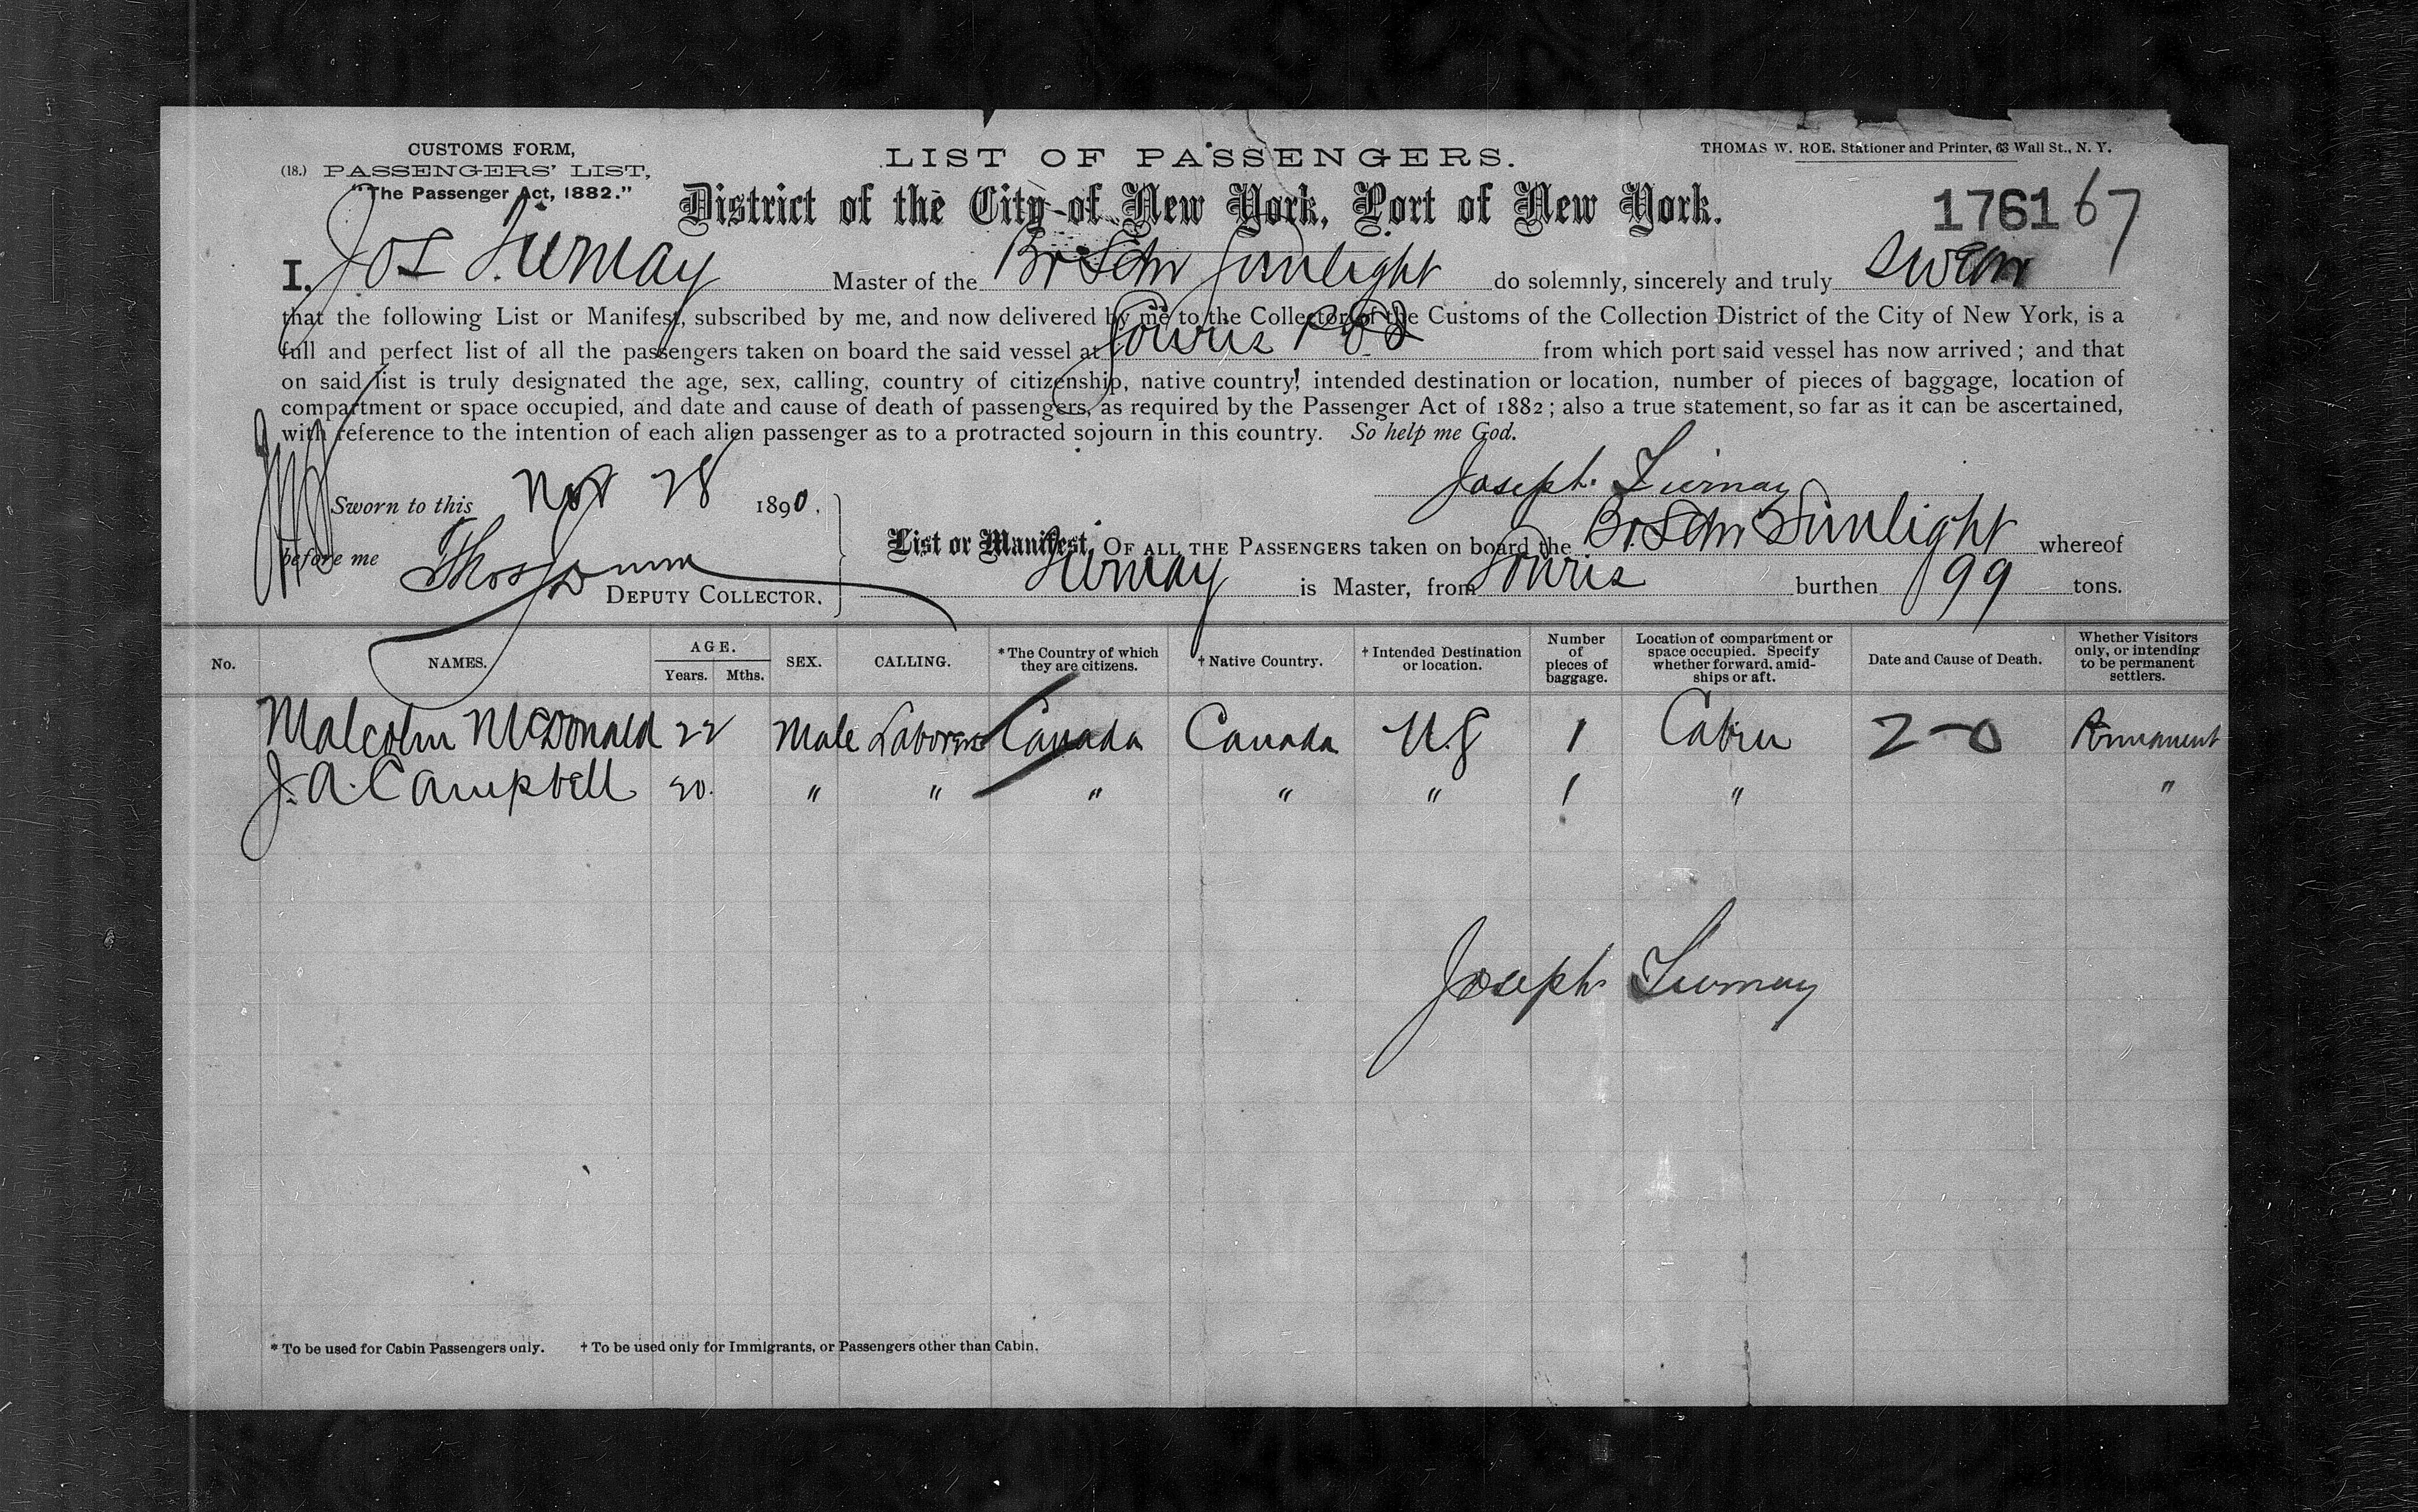 CUSTOMS FORM,
(18.) PASSENGERS' LIST,
"The Passenger Act, 1882."
LIST OF PASSENGERS.
THOMAS W. ROE, Stationer and Printer, 63 Wall St., N. Y.
District of the City of New York, Port of New York.
1761 67
I, Jos Master of the Br Schr Sunlight do solemnly, sincerely and truly swear
that the following List or Manifest, subscribed by me, and now delivered by me to the Collector of the Customs of the Collection District of the City of New York, is a
full and perfect list of all the passengers taken on board the said vessel at Souris from which port said vessel has now arrived; and that
on said list is truly designated the age, sex, calling, country of citizenship, native country, intended destination or location, number of pieces of baggage, location of
compartment or space occupied, and date and cause of death of passengers, as required by the Passenger Act of 1882; also a true statement, so far as it can be ascertained,
with reference to the intention of each alien passenger as to a protracted sojourn in this country. So help me God.
Joseph
Sworn to this Nov 28 1890.
before me Thos
DEPUTY COLLECTOR.
List or Manifest, OF ALL THE PASSENGERS taken on board the Br Schr Sunlight whereof
is Master, from Souris burthen 99 tons.
No. NAMES. AGE. Years. Mths. SEX. CALLING. * The Country of which they are citizens. † Native Country. † Intended Destination or location. Number of pieces of baggage. Location of compartment or space occupied. Specify whether forward, amid-ships or aft. Date and Cause of Death. Whether Visitors only, or intending to be permanent settlers.
Malcolm McDonald 22 Male Laborer Canada Canada U.S 1 Cabin 2-0 Permanent
J. A. Campbell 20. " " " " " 1 " "
Joseph
* To be used for Cabin Passengers only. † To be used only for Immigrants, or Passengers other than Cabin.